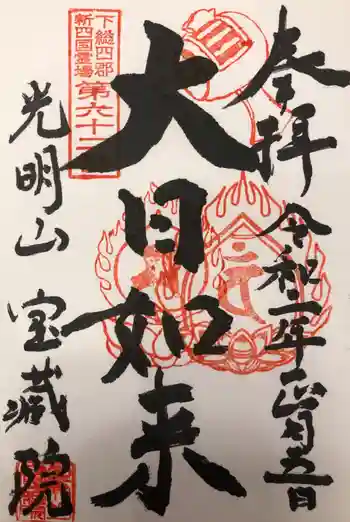 奉拝
令和二年正月五日
大日如来
下総四郡
新四国霊場
第六十
光明山
宝蔵院